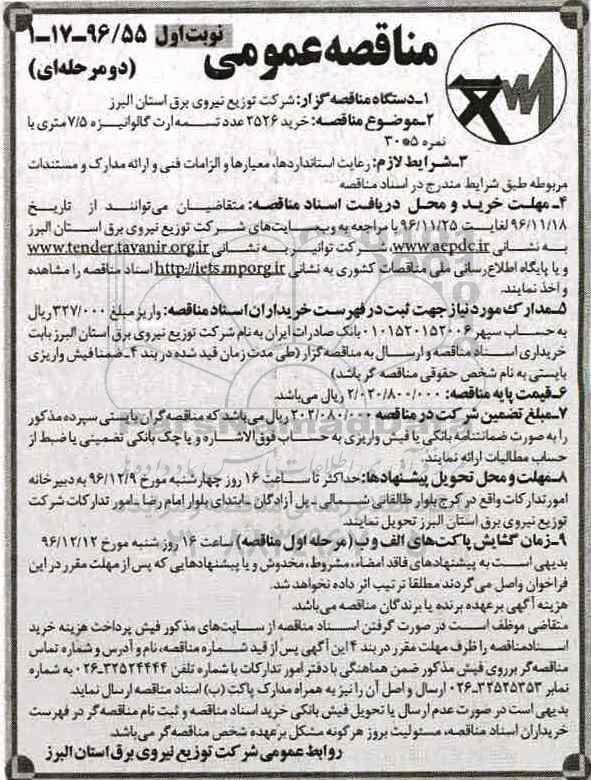 مناقصه عمومی
نوبت اول ۹۶/۵۵-۱۷-۱
(دو مرحله‌ای)
۱-دستگاه مناقصه گزار: شرکت توزیع نیروی برق استان البرز
۲-موضوع مناقصه: خرید ۲۵۲۶ عدد تسمه ارت گالوانیزه ۷/۵ متری با
نمره ۵*۳۰
۳-شرایط لازم: رعایت استانداردها، معیارها و الزامات فنی و ارائه مدارک و مستندات
مربوطه طبق شرایط مندرج در اسناد مناقصه
۴- مهلت خرید و محل دریافت اسناد مناقصه: متقاضیان می‌توانند از تاریخ
۹۶/۱۱/۱۸ لغایت ۹۶/۱۱/۲۵ با مراجعه به وب‌سایت‌های شرکت توزیع نیروی برق استان البرز
به نشانی www.aepdc.ir، شرکت توانیر به نشانی www.tender.tavanir.org.ir
و یا پایگاه اطلاع‌رسانی ملی مناقصات کشوری به نشانی http://iets.mporg.ir اسناد مناقصه را مشاهده
و اخذ نمایند.
۵-مدارک مورد نیاز جهت ثبت در فهرست خریداران اسناد مناقصه: واریز مبلغ ۳۲۷/۰۰۰ ریال
به حساب سپهر ۰۱۰۱۵۲۰۱۵۲۰۰۶ بانک صادرات ایران به نام شرکت توزیع نیروی برق استان البرز بابت
خریداری اسناد مناقصه و ارسال به مناقصه گزار (طی مدت زمان قید شده در بند ۴-ضمنا فیش واریزی
بایستی به نام شخص حقوقی مناقصه گر باشد)
۶-قیمت پایه مناقصه: ۲/۰۲۰/۸۰۰/۰۰۰ ریال می‌باشد.
۷-مبلغ تضمین شرکت در مناقصه ۲۰۲/۰۸۰/۰۰۰ ریال می‌باشد که مناقصه‌گران بایستی سپرده مذکور
را به صورت ضمانتنامه بانکی یا فیش واریزی به حساب فوق‌الاشاره و یا چک بانکی تضمینی یا ضبط از
حساب مطالبات ارائه نمایند.
۸-مهلت و محل تحویل پیشنهادها: حداکثر تا ساعت ۱۶ روز چهارشنبه مورخ ۹۶/۱۲/۹ به دبیرخانه
امور تدارکات واقع در کرج بلوار طالقانی شمالی - پل آزادگان -ابتدای بلوار امام رضا -امور تدارکات شرکت
توزیع نیروی برق استان البرز تحویل نمایند.
۹-زمان گشایش پاکت‌های الف و ب (مرحله اول مناقصه) ساعت ۱۶ روز شنبه مورخ ۹۶/۱۲/۱۲
بدیهی است به پیشنهادهای فاقد امضاء، مشروط، مخدوش و یا پیشنهادهایی که پس از مهلت مقرر در این
فراخوان واصل می‌گردند مطلقا ترتیب اثر داده نخواهد شد.
هزینه آگهی برعهده برنده یا برندگان مناقصه می‌باشد.
متقاضی موظف است در صورت گرفتن اسناد مناقصه از سایت‌های مذکور فیش پرداخت هزینه خرید
اسناد مناقصه را ظرف مهلت مقرر در بند ۴ این آگهی پس از قید شماره مناقصه، نام و آدرس و شماره تماس
مناقصه‌گر بر روی فیش مذکور ضمن هماهنگی با دفتر امور تدارکات با شماره تلفن ۳۲۵۲۴۴۴۴-۰۲۶ به شماره
نمابر ۳۲۵۲۵۳۵۳-۰۲۶ ارسال و اصل آن را نیز به همراه مدارک پاکت (ب) اسناد مناقصه ارسال نماید.
بدیهی است در صورت عدم ارسال یا تحویل فیش بانکی خرید اسناد مناقصه و ثبت نام مناقصه‌گر در فهرست
خریداران اسناد مناقصه، مسئولیت بروز هرگونه مشکل برعهده شخص مناقصه‌گر می‌باشد.
روابط عمومی شرکت توزیع نیروی برق استان البرز